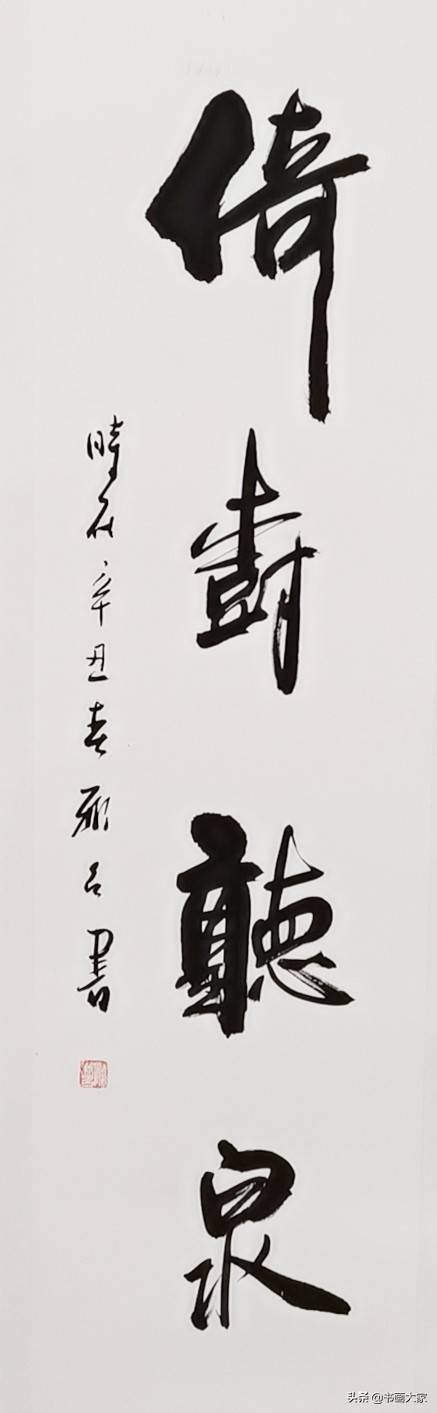 倚樹聽泉
時在辛丑春雁石書
头条@书画大家